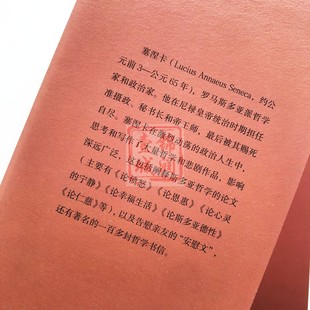 塞涅卡（Lucius Annaeus Seneca，约公
元前3—公元65年），罗马斯多亚派哲学
家和政治家。他在尼禄皇帝统治时期担任
准摄政、秘书长和帝王师，最后被其赐死
自尽。塞涅卡在激烈动荡的政治人生中，
思考和写作了大量哲学和悲剧作品，影响
深远广泛，这包括阐释斯多亚哲学的论文
（主要有《论愤怒》《论恩惠》《论心灵
的宁静》《论幸福生活》《论斯多亚德性》
《论仁慈》等），以及告慰亲友的“安慰文”，
还有著名的一百多封哲学书信。